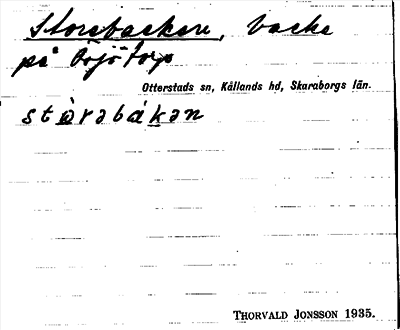 Storebacken, backe
på Börjötorp
Otterstads sn, Kållands hd, Skaraborgs län.
stòrabákan
THORVALD JONSSON 1935.